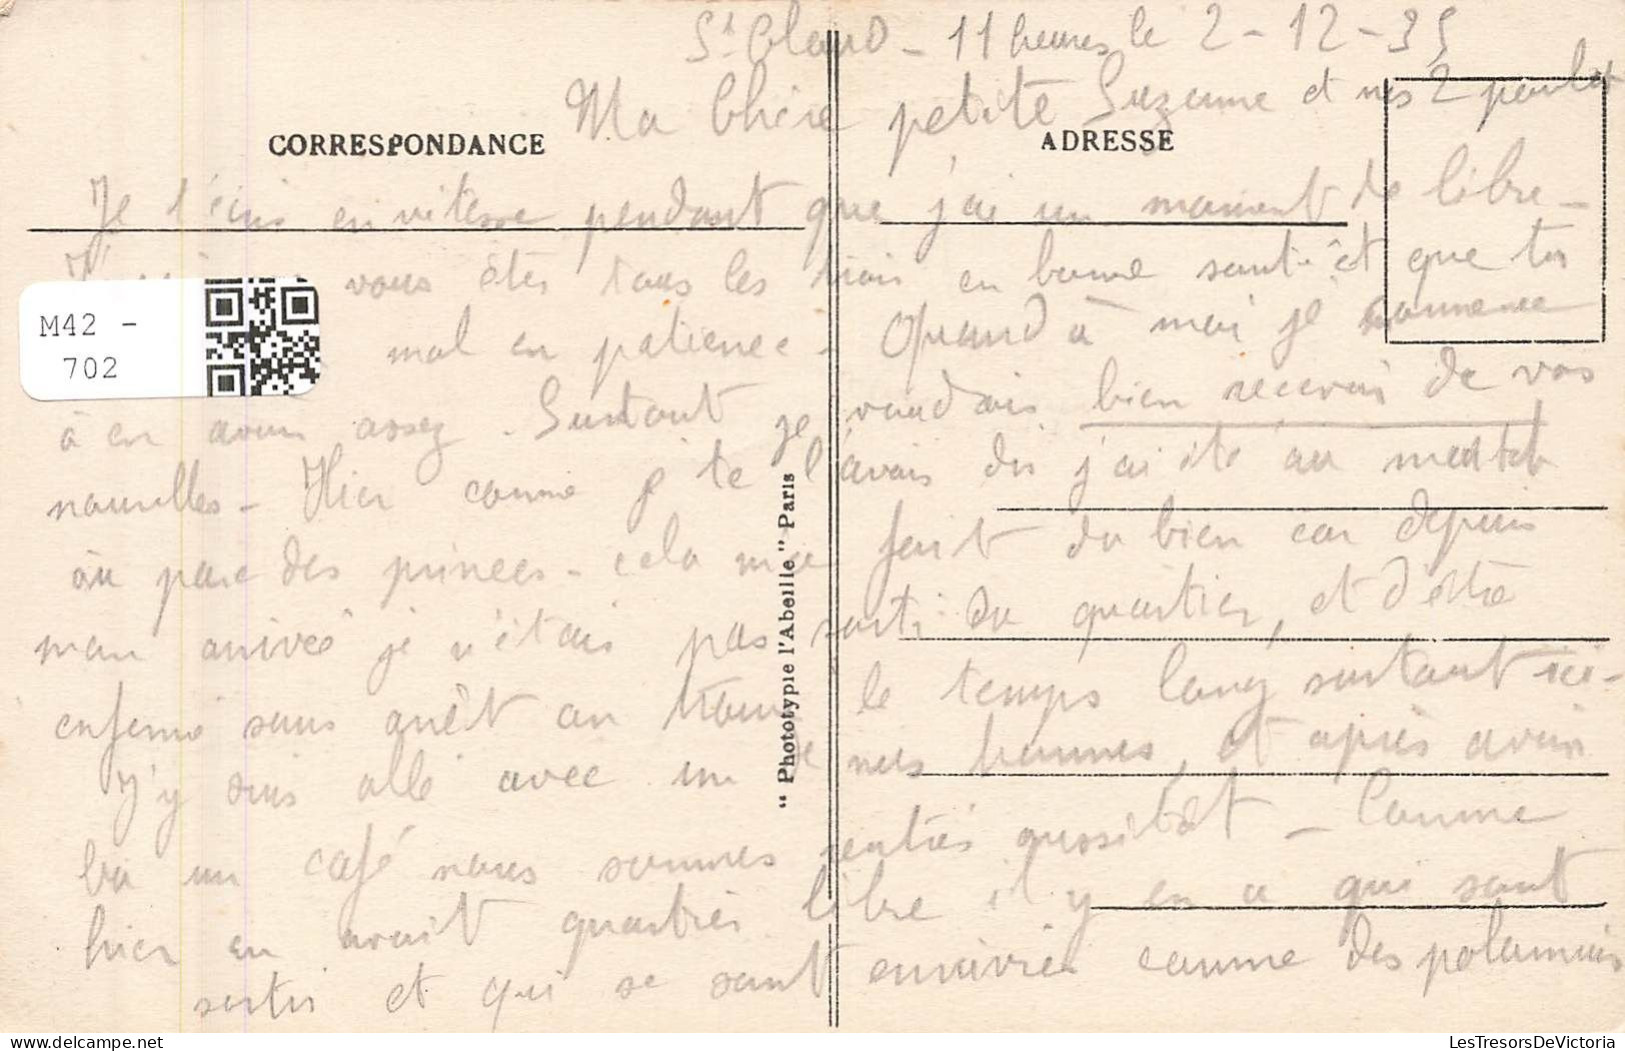 St Cloud - 11 heures le 2-12-35
Ma Chère petite Suzanne et nos 2 poulot
CORRESPONDANCE
ADRESSE
Je t'écris en vitesse pendant que j'ai un moment de libre -
vous êtes tous les trois en bonne santé et que tu
mal en patience - Quand à moi je commence
à en avoir assez. Surtout je voudrais bien recevoir de vos
nouvelles - Hier comme je te l'avais dis j'ai été au match
au parc des princes - cela m'a fait du bien car depuis
mon arrivée je n'étais pas sorti du quartier, et d'être
enfermé sans arrêt on trouve le temps long surtout ici -
J'y suis allé avec un de nos hommes, et après avoir
bu un café nous sommes rentrés aussitôt - Comme
hier on avait quartier libre il y en a qui sont
sortis et qui se sont enivrés comme des polonais
"Phototypie l'Abeille" Paris
M42 -
702
delcampe.net
LesTresorsDeVictoria